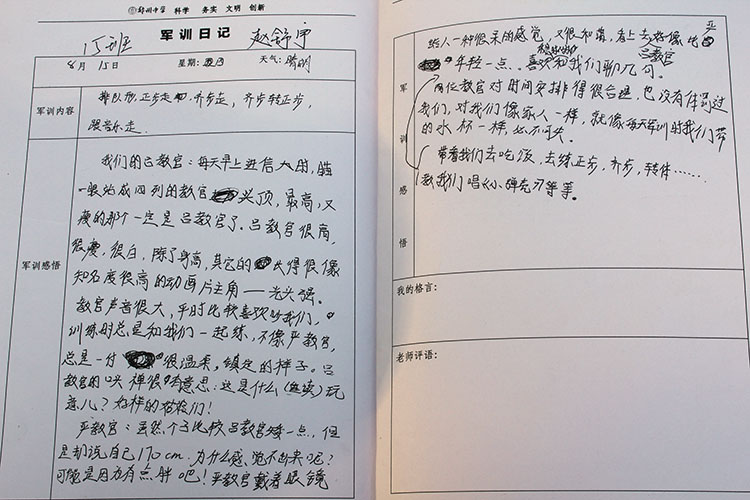 郑州中学 科学 务实 文明 创新
军训日记
15班 赵舒宇
8月15日 星期: 天气:晴朗
军训内容
排队形,正步走,齐步走,齐步转正步,
跟音乐走。
军训感悟
我们的吕教官:每天早上进信大时,
一般站成四列的教官 头顶,最高,又
瘦的那个一定是吕教官了。吕教官很高,
很瘦,很白,除了身高,其它的 长得很像
知名度很高的动画片主角——光头强。
教官声音很大,平时比较喜欢吵我们,
训练时总是和我们一起练,不像严教官,
总是一付 很温柔,镇定的样子。吕
教官的口头禅很有意思:这是什么(连续)玩
意儿?好样的姑娘们!
严教官:虽然个子比较吕教官矮一点,但
是却说自己170cm.为什么感觉不出来呢?
可能是因为有点胖吧!严教官戴着眼镜
军训感悟
给人一种很呆的感觉,又很和蔼,看上去好像比严教官
年轻一点。喜欢和我们聊几句。
两位教官对时间安排得很合理,也没有体罚过
我们,对我们像家人一样,就像每天军训时我们带
的水杯一样,必不可少。
带着我们去吃饭,去练正步,齐步,转体……
教我们唱《小弹壳》等等。
我的格言:
老师评语: